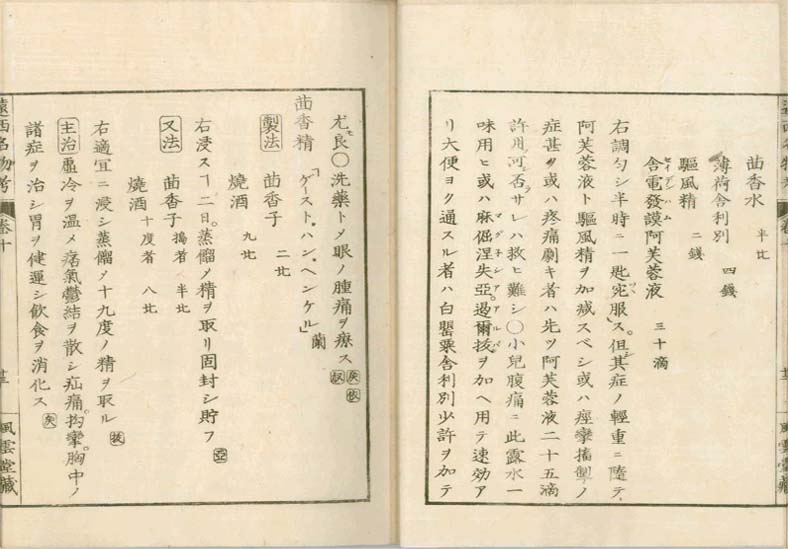 茴香水 半比
薄荷舎利別 四錢
驅風精 二錢
含電發謨阿芙蓉液 三十滴
セイデンハム
右調勻シ半時ニ一匙宛服ス。但其症ノ輕重ニ隨テ
阿芙蓉液ト驅風精ヲ加減スベシ或ハ痙攣搐掣ノ
症甚ダ或ハ疼痛劇キ者ハ先ツ阿芙蓉液二十五滴
許用可否サレハ救ヒ難シ〇小兒腹痛ニ此露水一
味用ヒ或ハ麻倔涅失亞。遏爾拔ヲ加ヘ用テ速効ア
マグネシア アルバ
リ大便ヨク通スル者ハ白罌粟舎利別少許ヲ加テ
尤良〇洗藥トメ眼ノ腫痛ヲ療ス
茴香精 「ゲースト。ハン。ヘンケル」蘭
製法 茴香子 二比
燒酒 九比
右浸スヿ二日。蒸餾ノ精ヲ取リ固封シ貯フ 亞
又法 茴香子 搗者 半比
燒酒 十度者 八比
右適宜ニ浸シ蒸餾メ十九度ノ精ヲ取ル 拔
主治 虛冷ヲ温メ痞氣鬱結ヲ散シ疝痛。拘攣。胸中ノ
諸症ヲ治シ胃ヲ健運シ飲食ヲ消化ス
遠西名物考
卷十
風雲堂藏
風雲堂藏